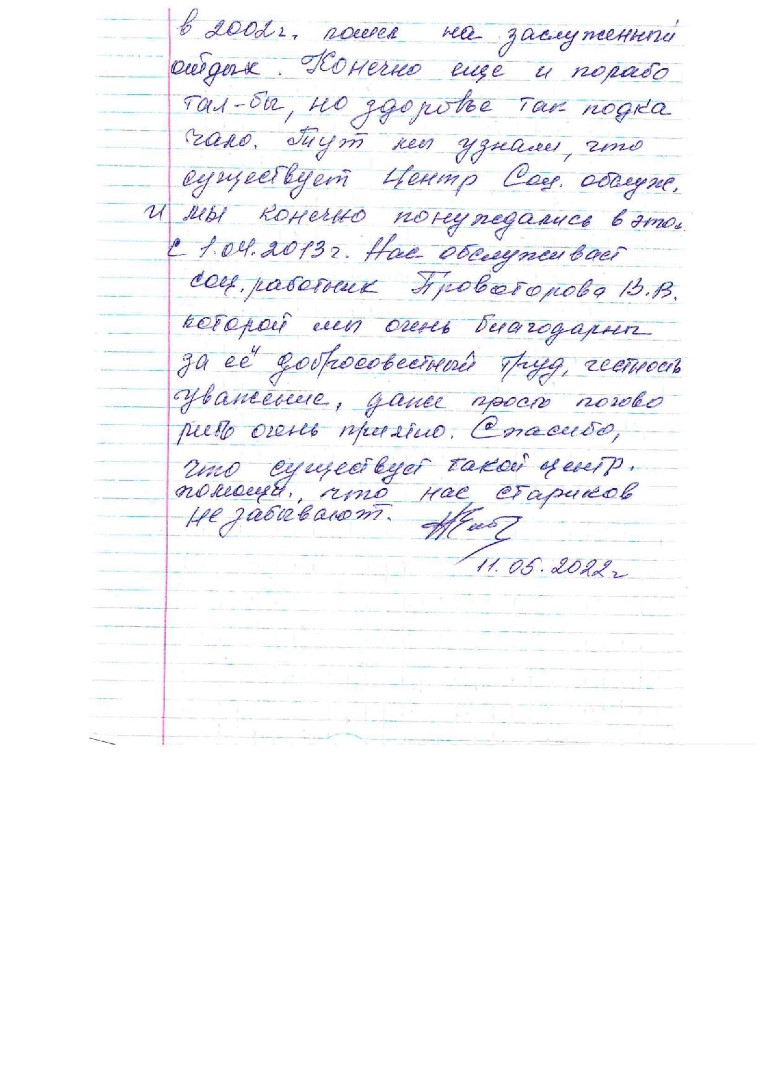 в 2002г. пошел на заслуженный
отдых. Конечно еще и порабо
тал-бы, но здоровье так подка
чало. Тут мы узнали, что
существует Центр Соц. обслуж.
и мы конечно понуждались в этом.
с 1.04.2013г. Нас обслуживает
соц. работник Провоторова В.В.
которой мы очень благодарны
за её добросовестный труд, честность
уважение, даже просто погово
рить очень приятно. Спасибо,
что существует такой центр.
помощи, что нас стариков
не забывают.
11.05.2022г